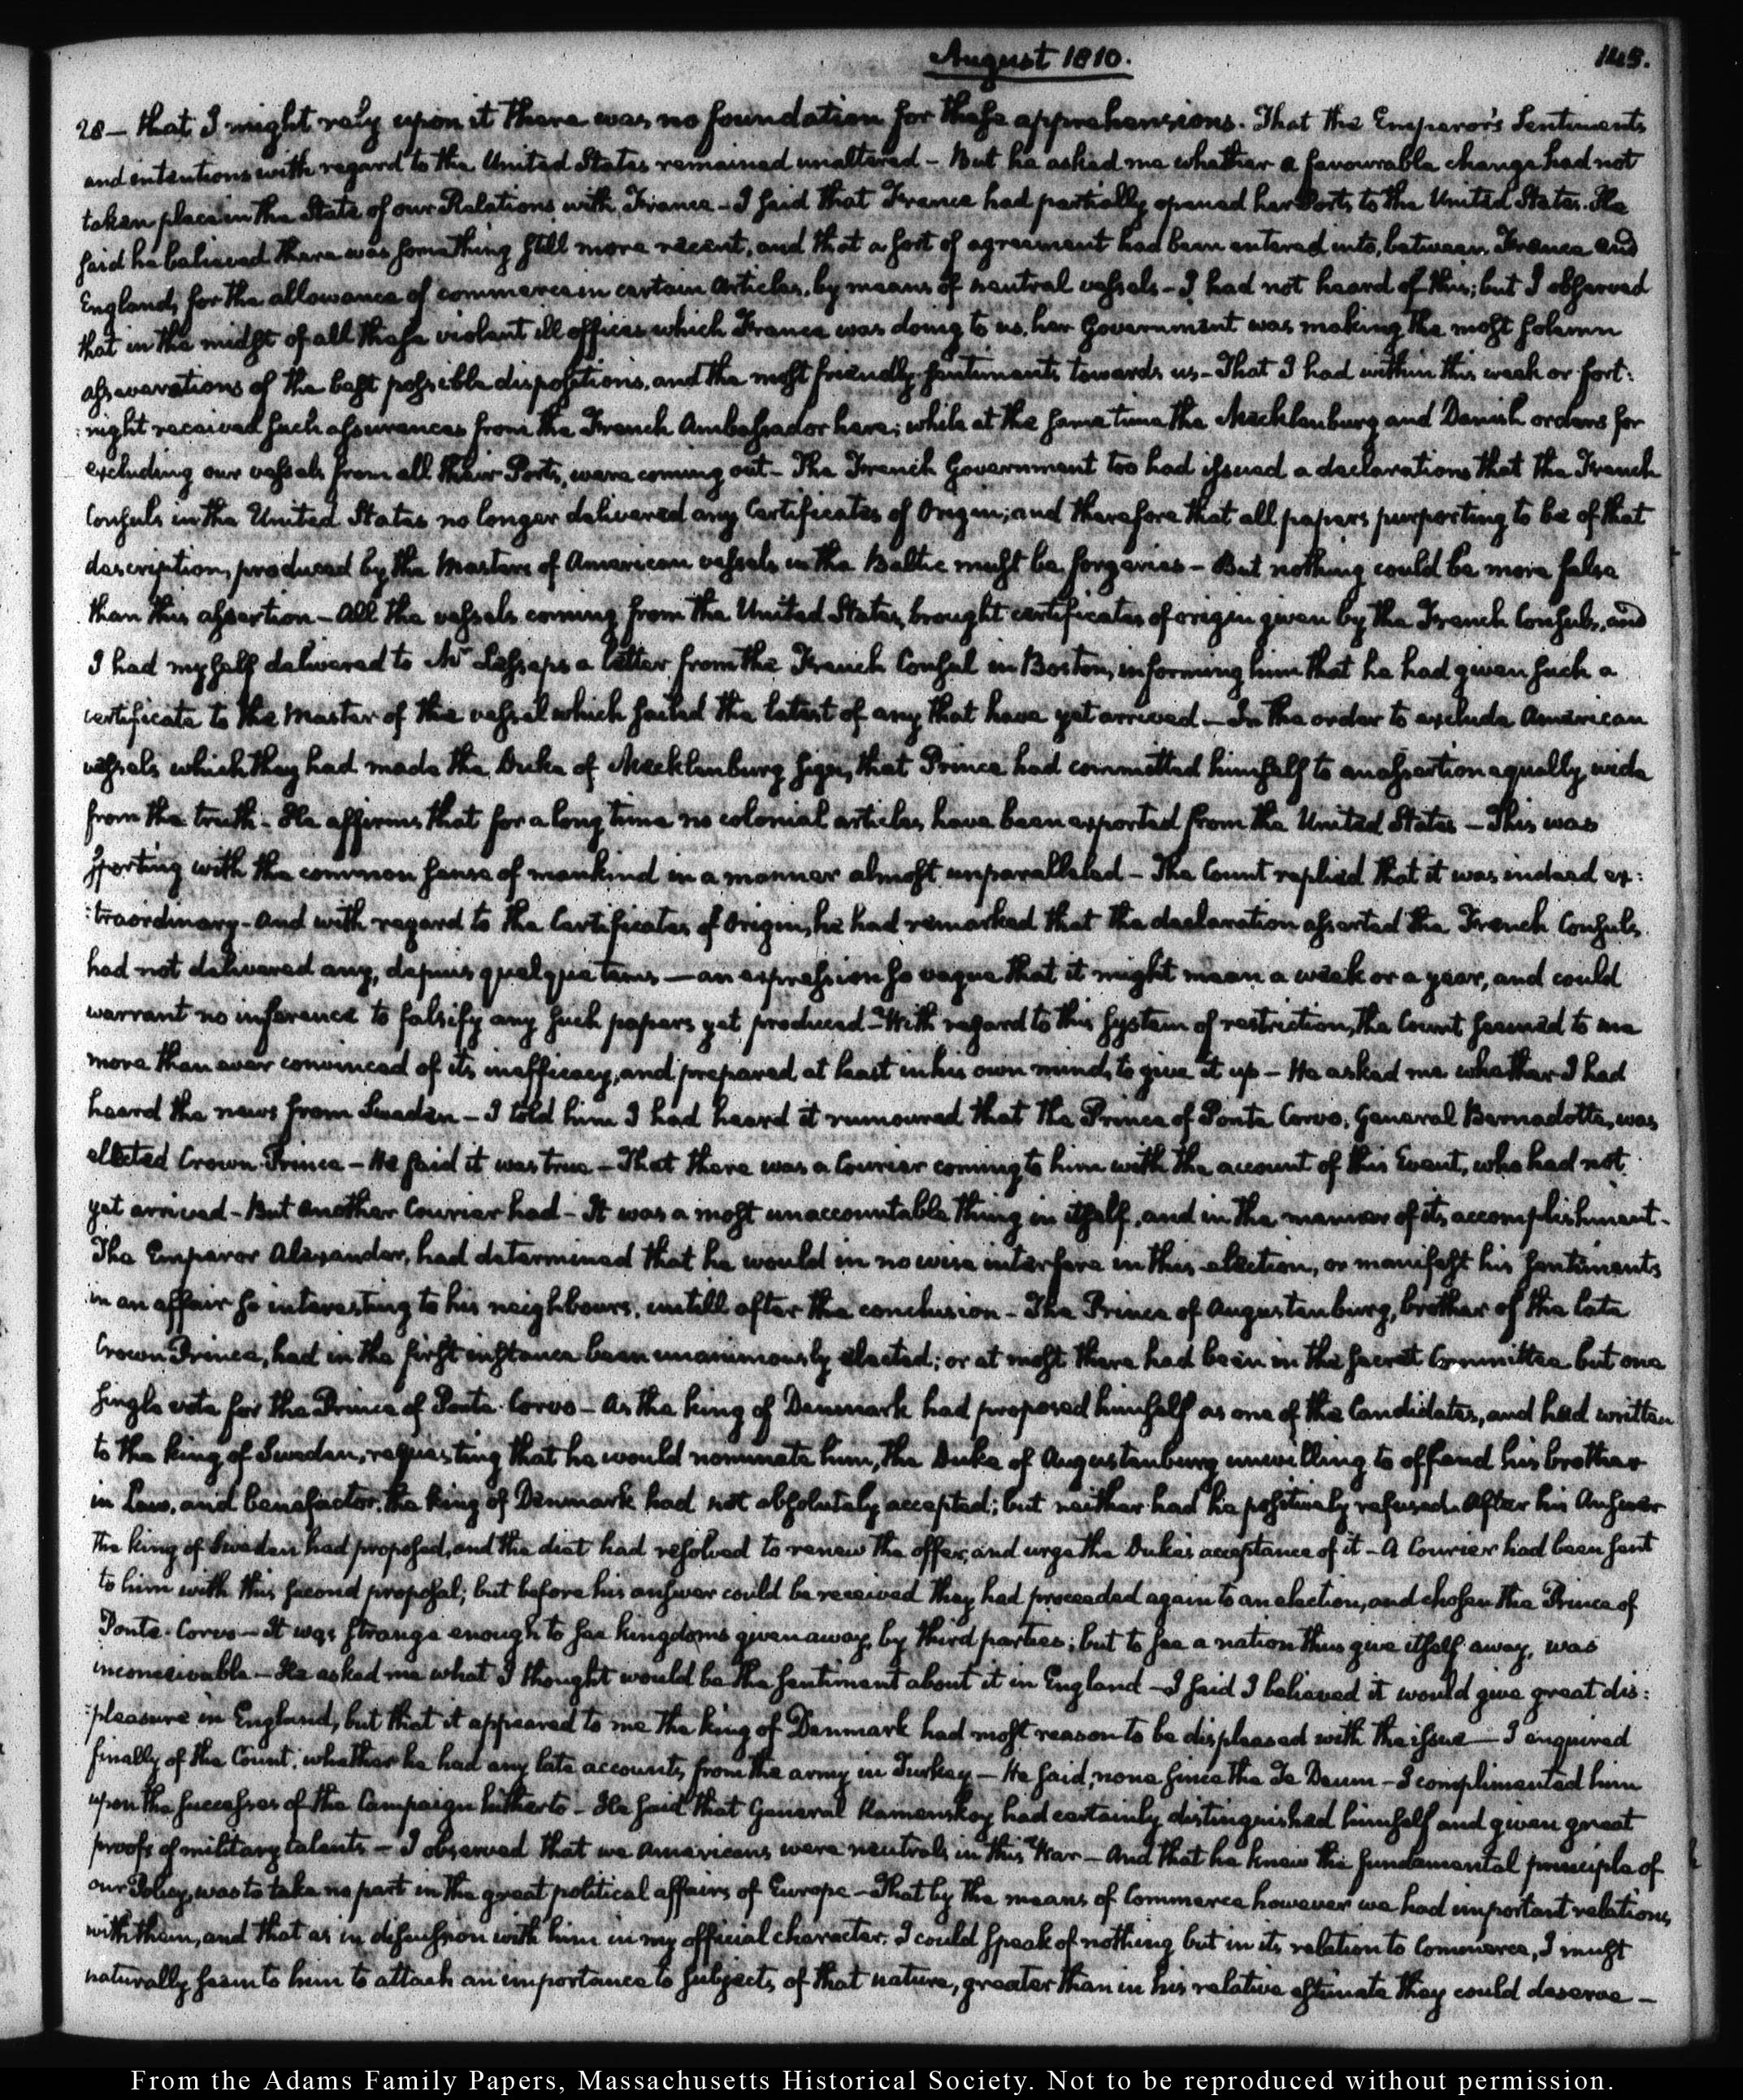 August 1810.
28 — that I might rely upon it there was no foundation for these apprehensions. That the Emperor's Sentiments
and intentions with regard to the United States remained unaltered — But he asked me whether a favourable change had not
taken place in the State of our Relations with France — I said that France had partially opened her Ports to the United States. He
said he believed there was something still more recent, and that a sort of agreement had been entered into, between France and
England, for the allowance of commerce in certain articles, by means of neutral vessels — I had not heard of this; but I observed
that in the midst of all these violent ill offices which France was doing to us, her Government was making the most solemn
asseverations of the best possible dispositions, and the most friendly sentiments towards us — That I had within this week or fort:
:night received such assurances from the French Ambassador here; while at the same time the Mecklenburg and Danish orders for
excluding our vessels from all their Ports, were coming out — The French Government too had issued a declaration, that the French
Consuls in the United States no longer delivered any Certificates of Origin; and therefore that all papers purporting to be of that
description, produced by the Masters of American vessels in the Baltic must be forgeries — But nothing could be more false
than this assertion — All the vessels coming from the United States, brought certificates of origin given by the French Consuls, and
I had myself delivered to Mr Lesseps a letter from the French Consul in Boston, informing him that he had given such a
certificate to the Master of the vessel which sailed the latest of any that have yet arrived — In the order to exclude American
vessels which they had made the Duke of Mecklenburg sign, that Prince had committed himself to an assertion equally wide
from the truth — He affirms that for a long time no colonial articles have been exported from the United States — This was
sporting with the common sense of mankind in a manner almost unparalleled — The Count replied that it was indeed ex:
:traordinary — and with regard to the Certificates of Origin, he had remarked that the declaration asserted the French Consuls
had not delivered any, depuis quelque tems — an expression so vague that it might mean a week or a year, and could
warrant no inference to falsify any such papers yet produced — With regard to this system of restriction, the Count seemed to me
more than ever convinced of its inefficacy, and prepared at least in his own mind, to give it up — He asked me whether I had
heard the news from Sweden — I told him I had heard it rumoured that the Prince of Ponte Corvo, General Bernadotte, was
elected Crown Prince — He said it was true — That there was a Courier coming to him with the account of this Event, who had not
yet arrived — But another Courier had — It was a most unaccountable thing in itself, and in the manner of its accomplishment —
The Emperor Alexander, had determined that he would in no wise interfere in this election, or manifest his sentiments
in an affair so interesting to his neighbours, untill after the conclusion — The Prince of Augustenburg, brother of the late
Crown Prince, had in the first instance been unanimously elected; or at most there had been in the secret Committee but one
single vote for the Prince of Ponte-Corvo — As the king of Denmark had proposed himself as one of the Candidates, and had written
to the king of Sweden, requesting that he would nominate him, the Duke of Augustenburg unwilling to offend his brother
in Law, and benefactor, the king of Denmark had not absolutely accepted; but neither had he positively refused. After his Answer
the king of Sweden had proposed, and the diet had resolved to renew the offer, and urge the Duke's acceptance of it — A Courier had been sent
to him with this second proposal; but before his answer could be received they had proceeded again to an election, and chosen the Prince of
Ponte-Corvo — It was strange enough to see kingdoms given away by third parties; but to see a nation thus give itself away, was
inconceivable — He asked me what I thought would be the sentiment about it in England — I said I believed it would give great dis:
:pleasure in England, but that it appeared to me the king of Denmark had most reason to be displeased with the issue — I enquired
finally of the Count, whether he had any late accounts from the army in Turkey — He said, none since the Te Deum — I complimented him
upon the successes of the Campaign hitherto — He said that General Kamenskoy had certainly distinguished himself and given great
proofs of military talents — I observed that we Americans were neutrals in this War — And that he knew the fundamental principle of
our Policy, was to take no part in the great political affairs of Europe — That by the means of Commerce however we had important relations
with them, and that as in discussion with him in my official character, I could speak of nothing but in its relation to Commerce, I must
naturally seem to him to attach an importance to subjects of that nature, greater than in his relative estimate they could deserve —
From the Adams Family Papers, Massachusetts Historical Society. Not to be reproduced without permission.